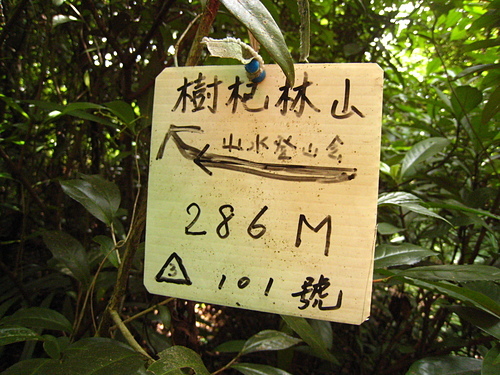 樹杞林山
山水登山会
286M
3 101號